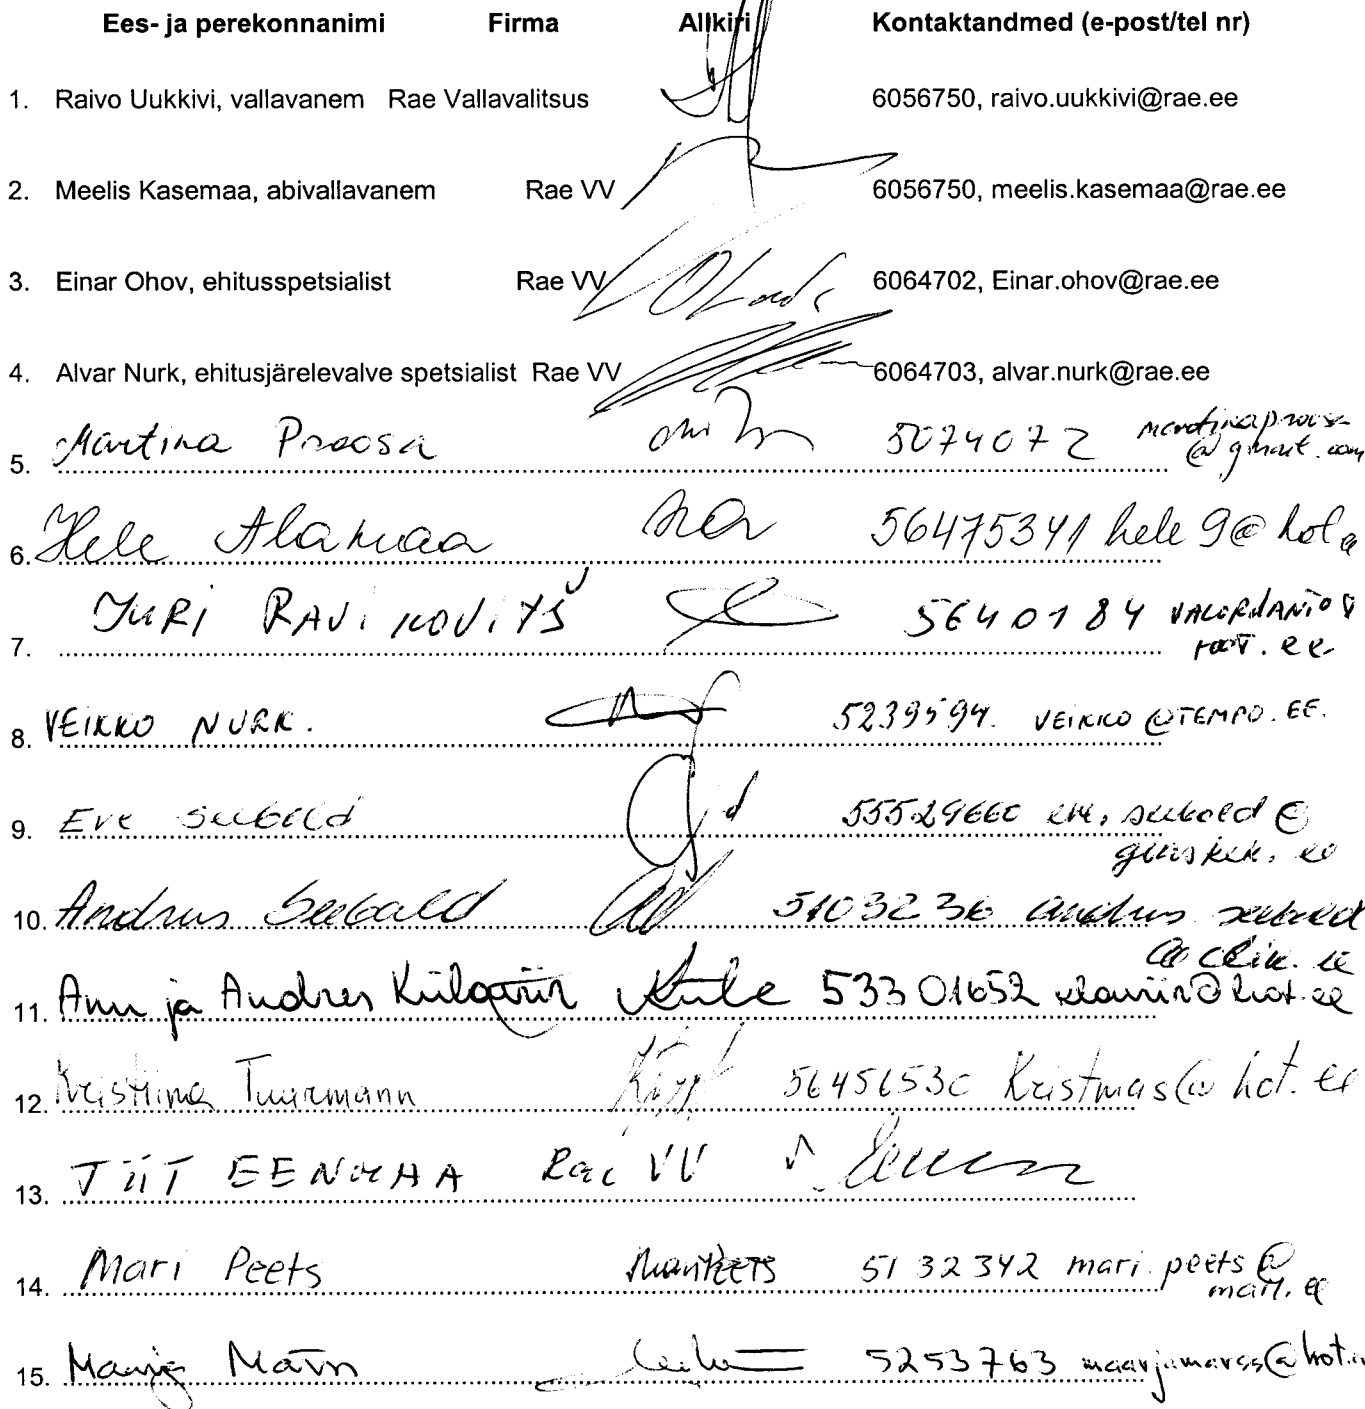 Ees- ja perekonnanimi Firma Allkiri Kontaktandmed (e-post/tel nr)
1. Raivo Uukkivi, vallavanem Rae Vallavalitsus 6056750, raivo.uukkivi@rae.ee
2. Meelis Kasemaa, abivallavanem Rae VV 6056750, meelis.kasemaa@rae.ee
3. Einar Ohov, ehitusspetsialist Rae VV 6064702, Einar.ohov@rae.ee
4. Alvar Nurk, ehitusjärelevalve spetsialist Rae VV 6064703, alvar.nurk@rae.ee
5. Martina Proosa 5074072 martinaproosa
@gmail.com
6. Hele Alamaa 56475341 hele9@hot.e
7. JURI RAVIKOVITŠ 5640184
8. VEIKKO NURK. 5239594. VEIKKO@TEMPO.EE.
9. Eve Seebold 55529660 eve.seebold@
10. Andrus Seebald 5103236 andrus seebald
11. Anu ja Andres 53301652 @hot.ee
12. Kristiina Tuurmann 56456530 Kristmas@hot.ee
13. TIIT EENMAA Rae VV
14. Mari Peets 5132342 mari.peets@
mail.ee
15. Marja 5253763 @hot.e